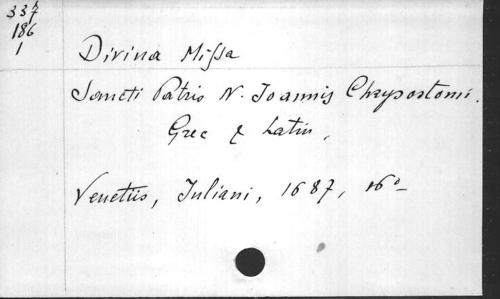 337
186
1
Divina Missa
Sancti Patris N. Joannis Chrysostomi.
Grec & Latin,
Venetiis, Juliani, 1687, 16°